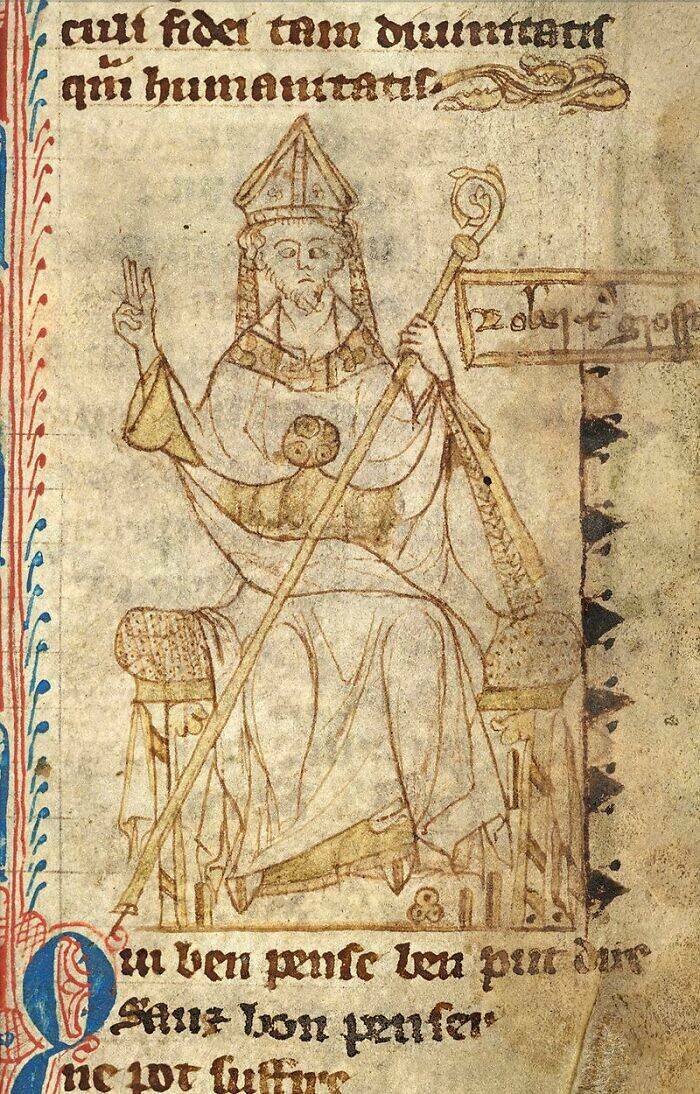 culi fidei tam diuinitatis
qm̃ humanitatis.
Rob̵t᷒ gross
Qui ben pense ben put dire
Sanz bon penser
ne pot suffire